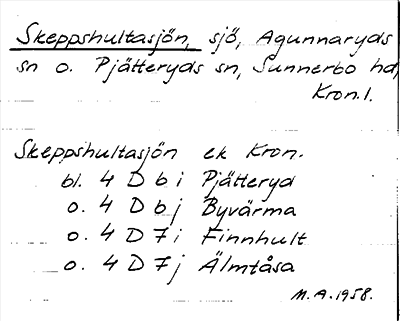 Skeppshultasjön, sjö, Agunnaryds
sn o. Pjätteryds sn, Sunnerbo hd,
Kron.l.
Skeppshultasjön ek Kron.
bl. 4 D 6 i Pjätteryd
o. 4 D 6 j Byvärma
o. 4 D 7 i Finnhult
o. 4 D 7 j Älmtåsa
M.A. 1958.